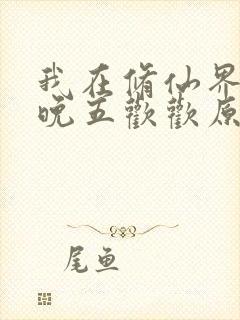 我在修仙界
晚五歡歡原
尾鱼